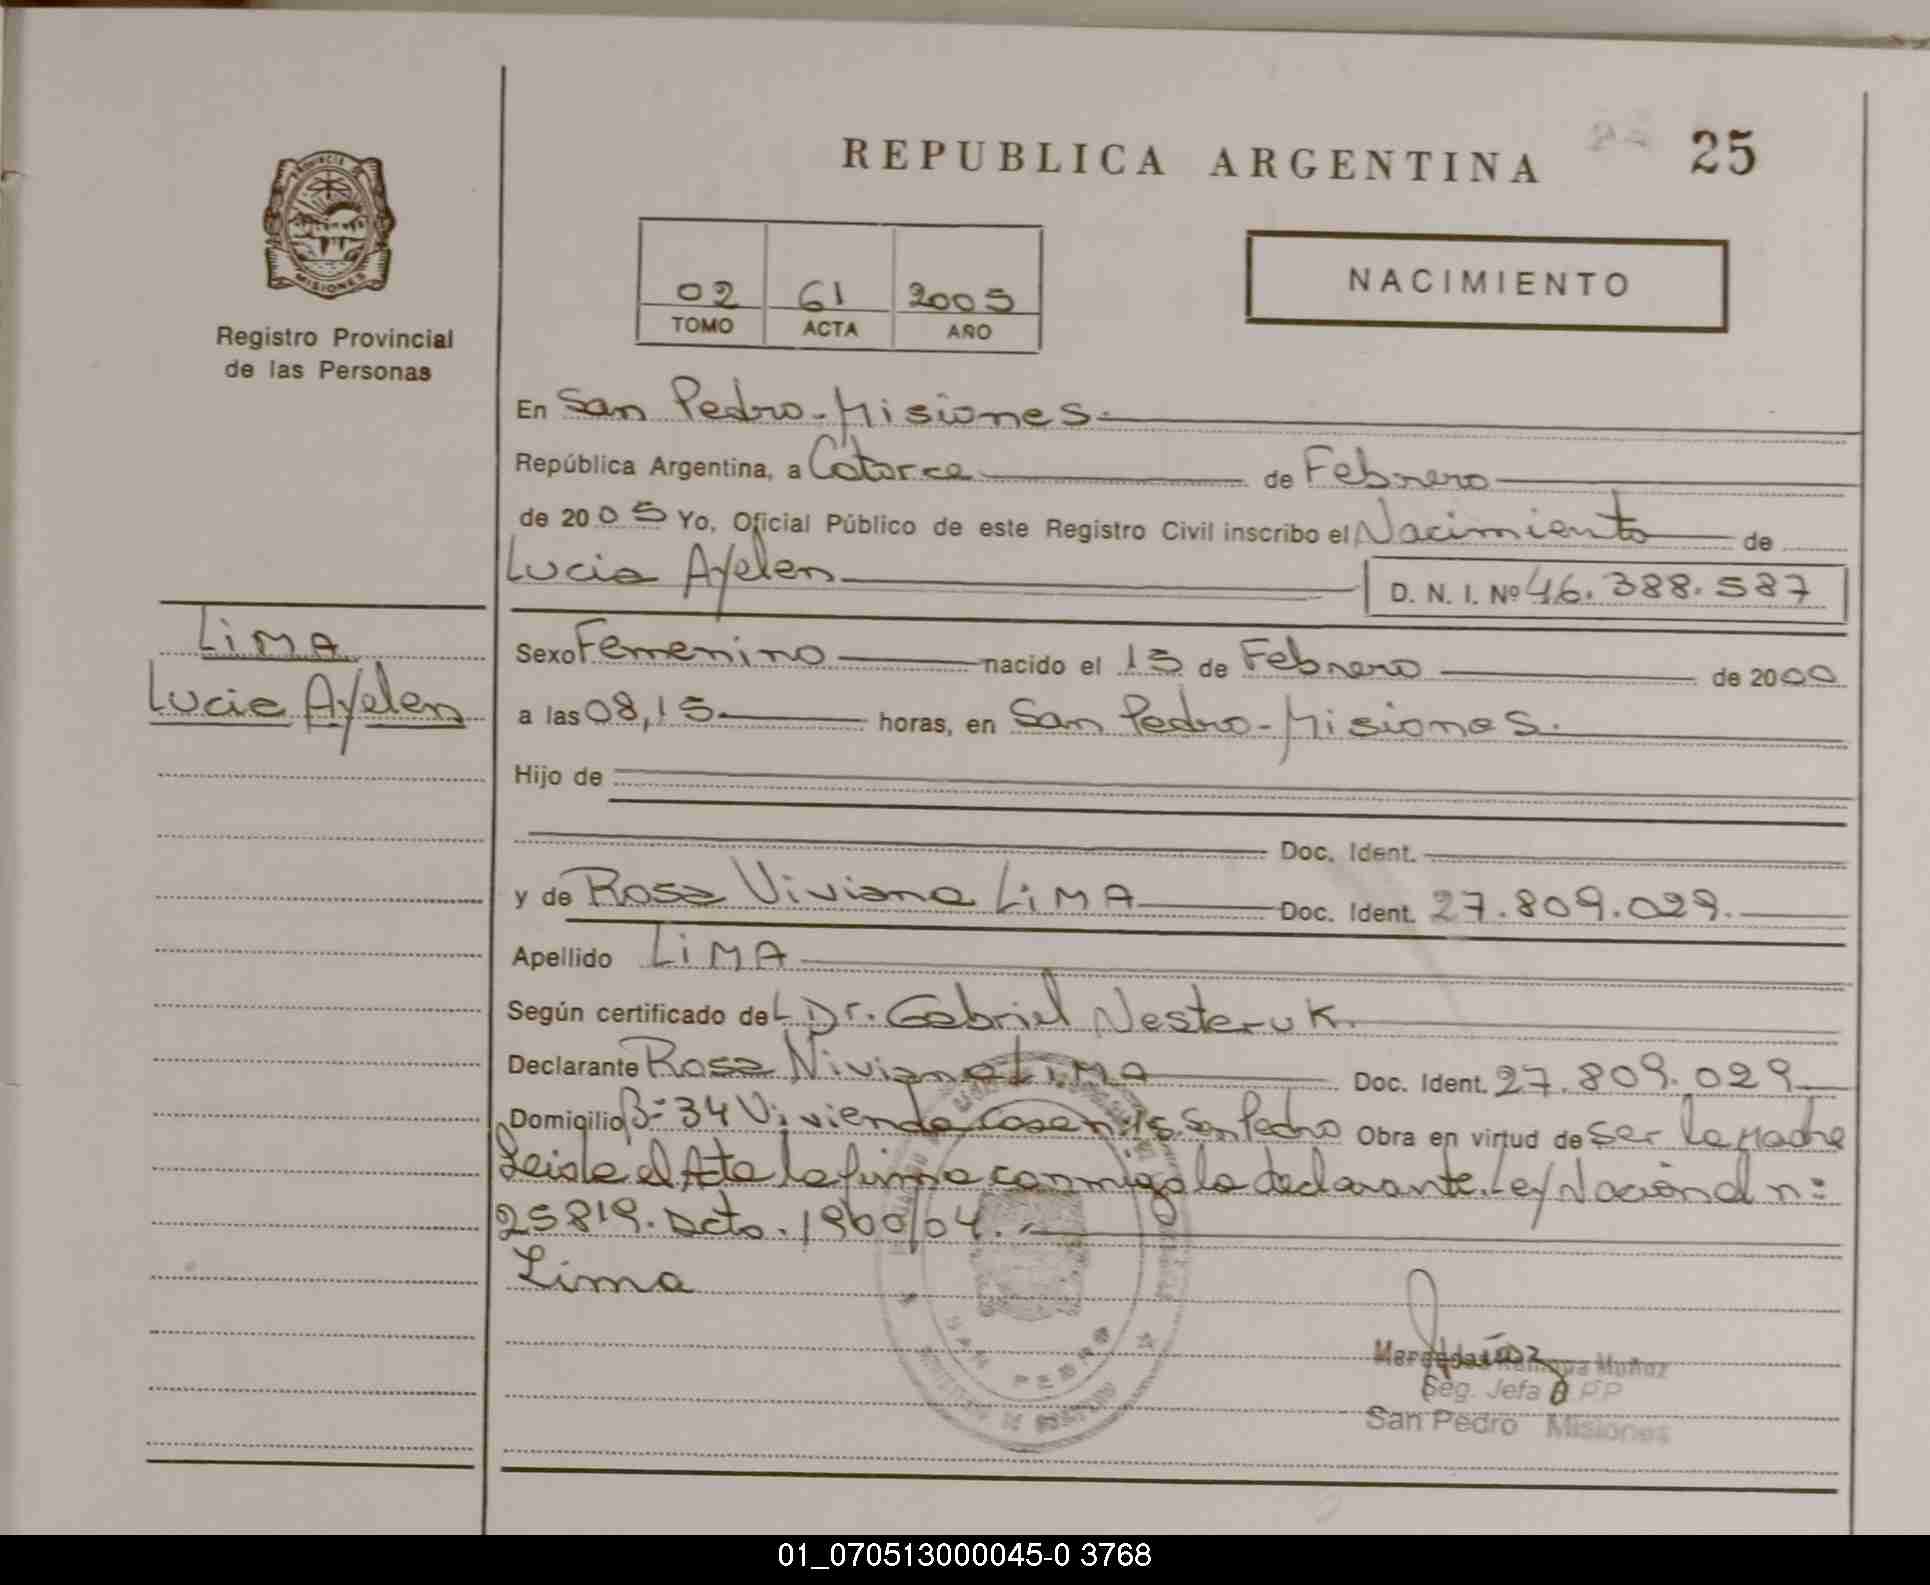 REPUBLICA ARGENTINA
25
PROVINCIA
MISIONES
Registro Provincial
de las Personas
02 61 2005
TOMO ACTA AÑO
NACIMIENTO
En San Pedro - Misiones.
República Argentina, a Catorce de Febrero
de 2005 Yo, Oficial Público de este Registro Civil inscribo el Nacimiento de
Lucia Ayelen D. N. I. Nº 46.388.587
LiMA
Lucia Ayelen
Sexo Femenino nacido el 15 de Febrero de 2000
a las 08,15 horas, en San Pedro - Misiones.
Hijo de
Doc. Ident.
y de Rosa Viviana LiMA Doc. Ident. 27.809.029.
Apellido LiMA
Según certificado del Dr. Gabriel Nesteruk.
Declarante Rosa Viviana LiMA Doc. Ident. 27.809.029
Domicilio B= 34 Vivienda San Pedro Obra en virtud de ser la Madre
Leida el Acta la firma conmigo la declarante. Ley Nacional n=
25819. Dcto. 1960/04.
Lima
Muñoz
Seg. Jefa PP
San Pedro Misiones
SAN PEDRO
01_070513000045-0 3768